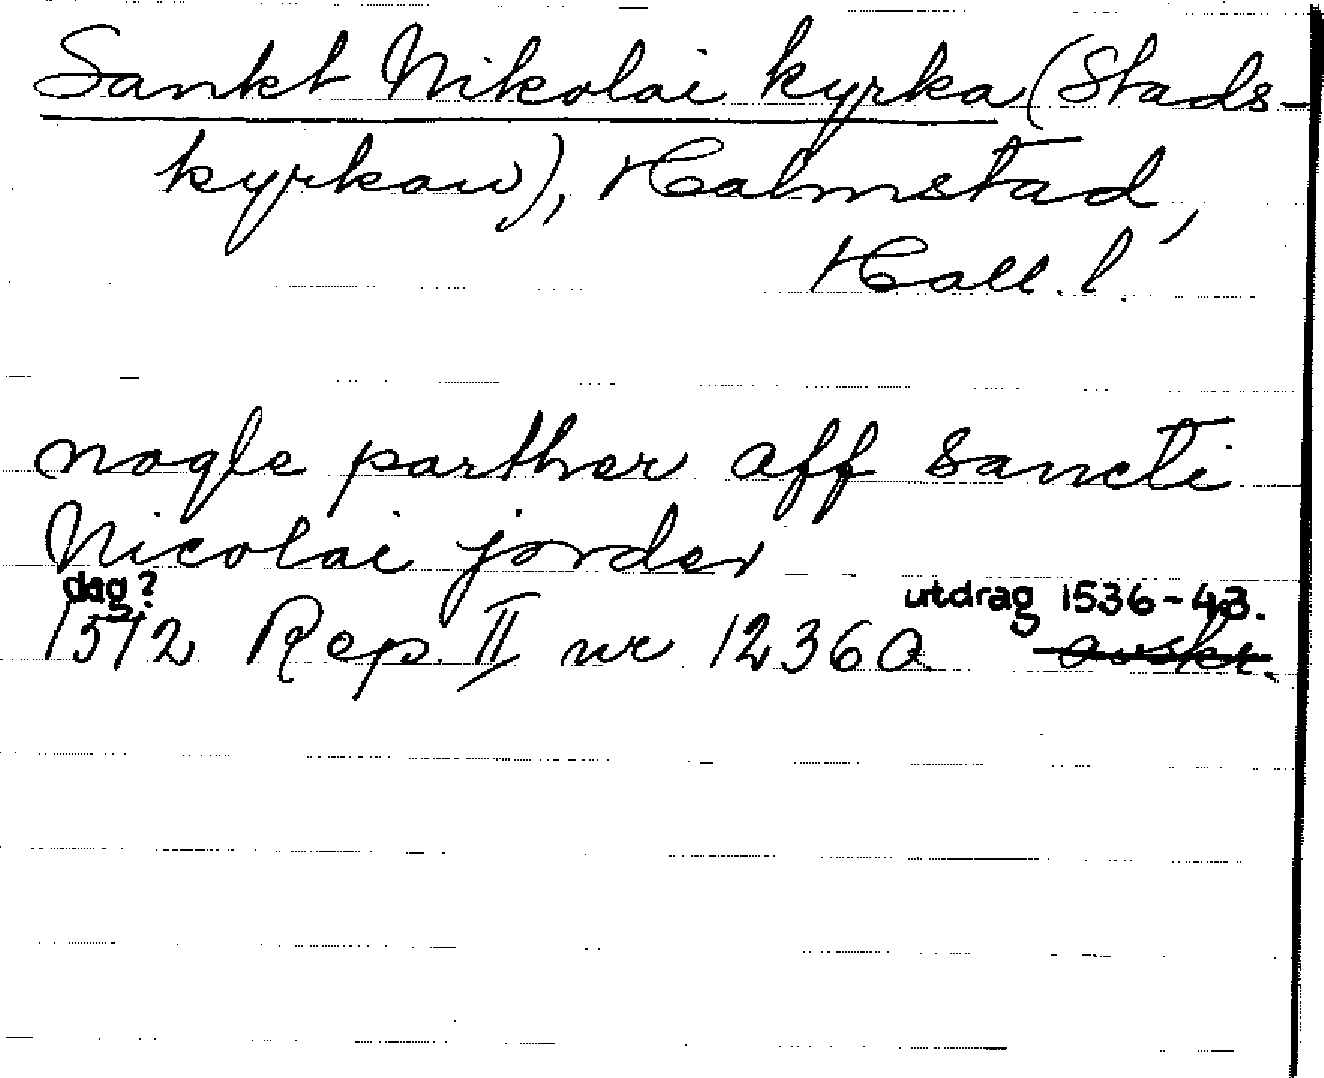 Sankt Nikolai kyrka (Stads-
kyrkan), Halmstad,
Hall. l.
nogle parther aff Sancti
Nicolai jorder
dag? utdrag 1536-43.
1512 Rep. II nr 12360 avskr.